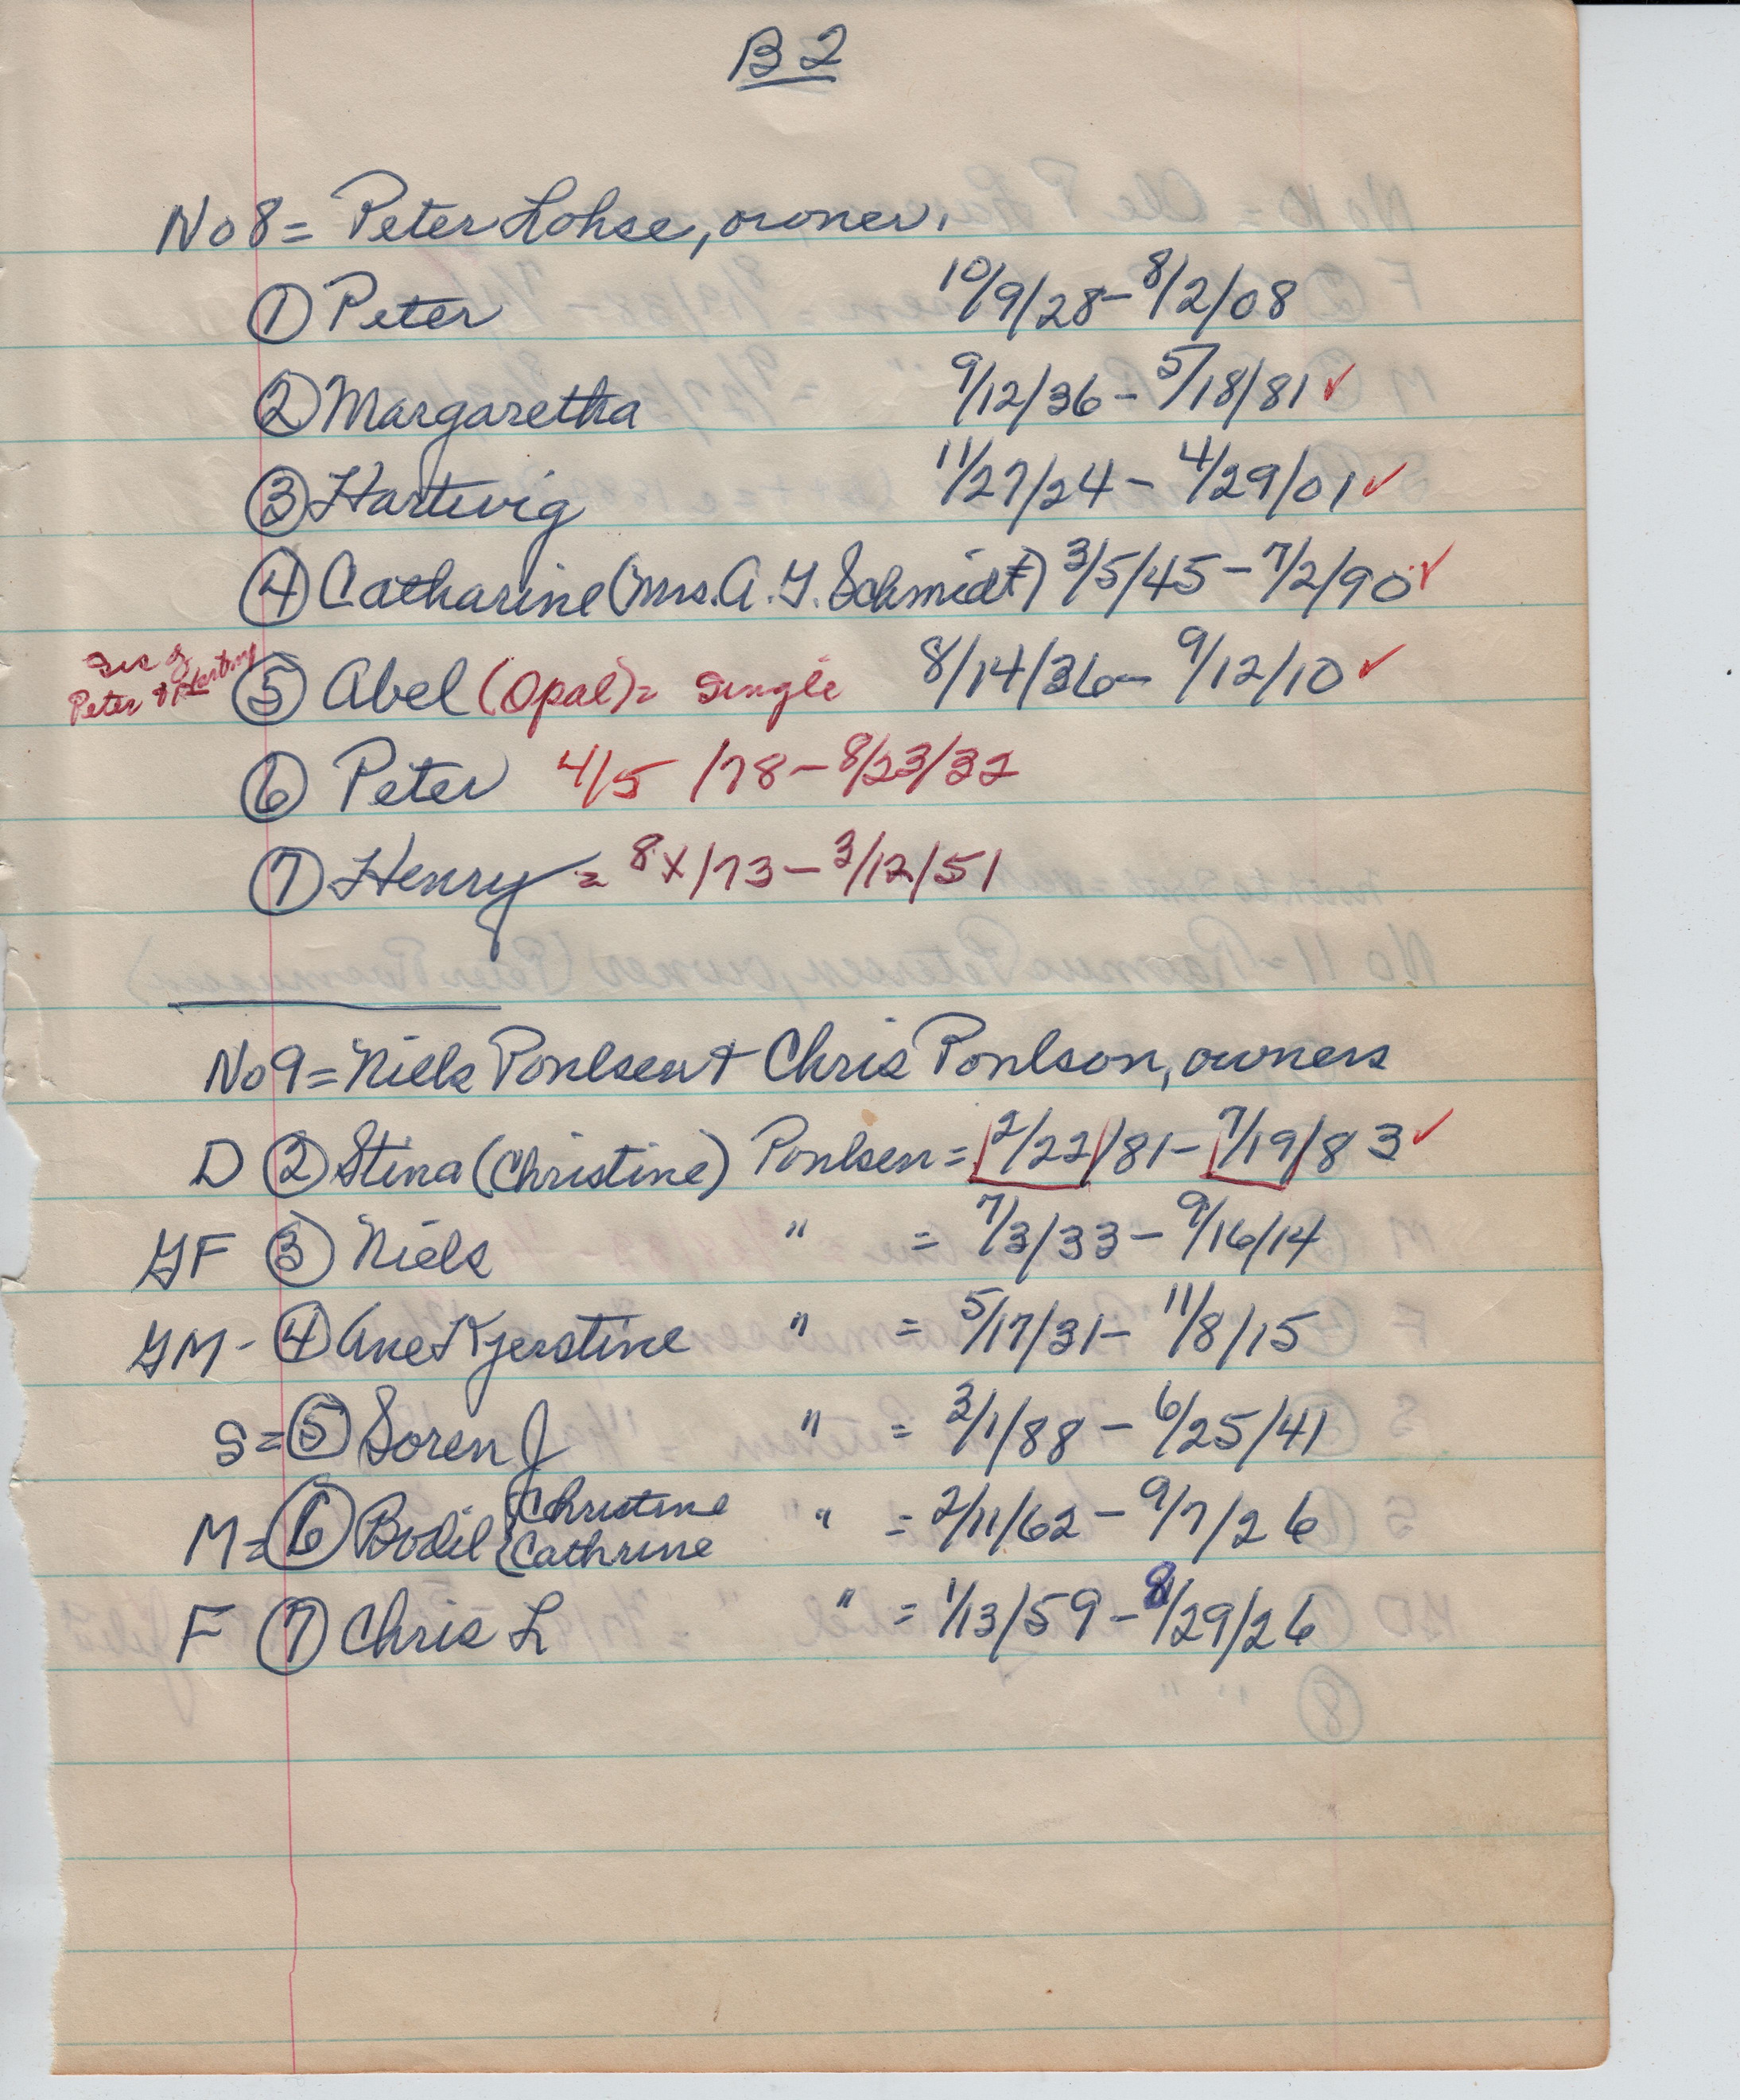 B 2
No 8 = Peter Lohse, owner.
① Peter 10/9/28 - 8/2/08
② Margaretha 9/12/36 - 5/18/81 ✓
③ Hartwig 11/27/24 - 4/29/01 ✓
④ Catharine (Mrs. A. G. Schmidt) 3/5/45 - 7/2/90 ✓
Sis of
Peter & Hartwig
⑤ Abel (Opal) = Single 8/14/36 - 9/12/10 ✓
⑥ Peter 4/5/78 - 8/23/32
⑦ Henry = 8x/73 - 3/12/51
No 9 = Niels Poulsen + Chris Poulson, owners
D ② Stina (Christine) Poulsen = 2/22/81 - 7/19/83 ✓
GF ③ Niels " = 7/3/33 - 9/16/14
GM - ④ Ane Kjerstine " = 5/17/31 - 11/8/15
S = ⑤ Soren J " = 3/1/88 - 6/25/41
M = ⑥ Bodil { Christine " = 2/11/62 - 9/7/26
Cathrine
F ⑦ Chris L " = 1/13/59 - 8/29/26